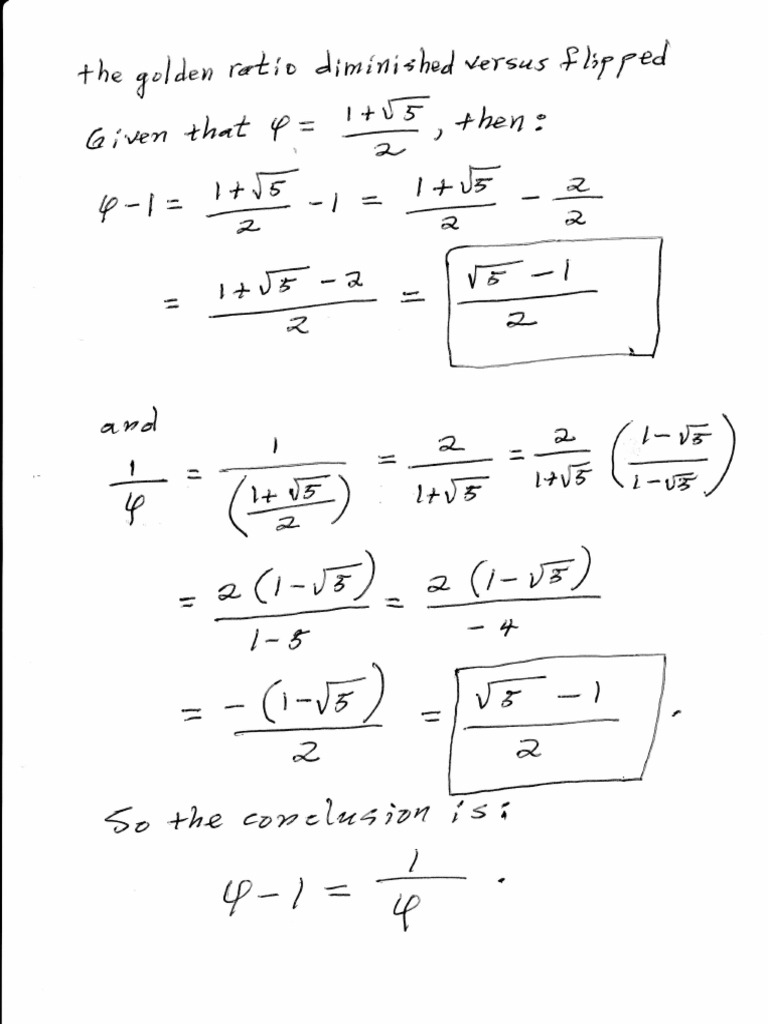 the golden ratio diminished versus flipped
Given that φ = (1+√5)/2, then:
φ-1 = (1+√5)/2 -1 = (1+√5)/2 - 2/2
= (1+√5-2)/2 = (√5-1)/2
and
1/φ = 1/((1+√5)/2) = 2/(1+√5) = 2/(1+√5) ((1-√5)/(1-√5))
= 2(1-√5)/(1-5) = 2(1-√5)/(-4)
= -(1-√5)/2 = (√5-1)/2.
So the conclusion is:
φ-1 = 1/φ.